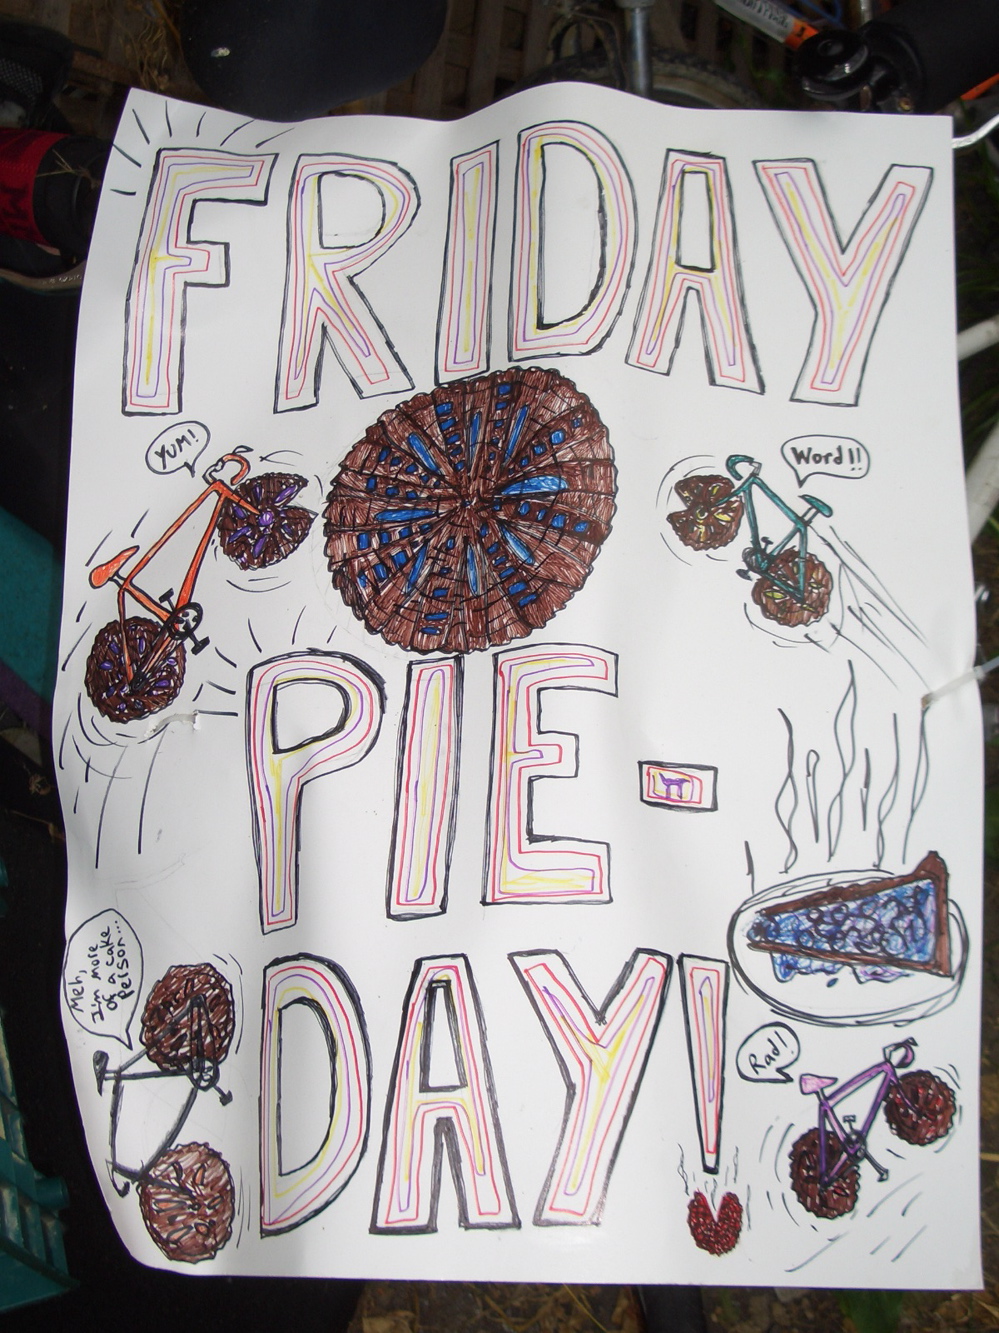 FRIDAY
YUM!
Word!!
PIE-
π
Meh,
I'm more
of a cake
person...
DAY!
Rad!